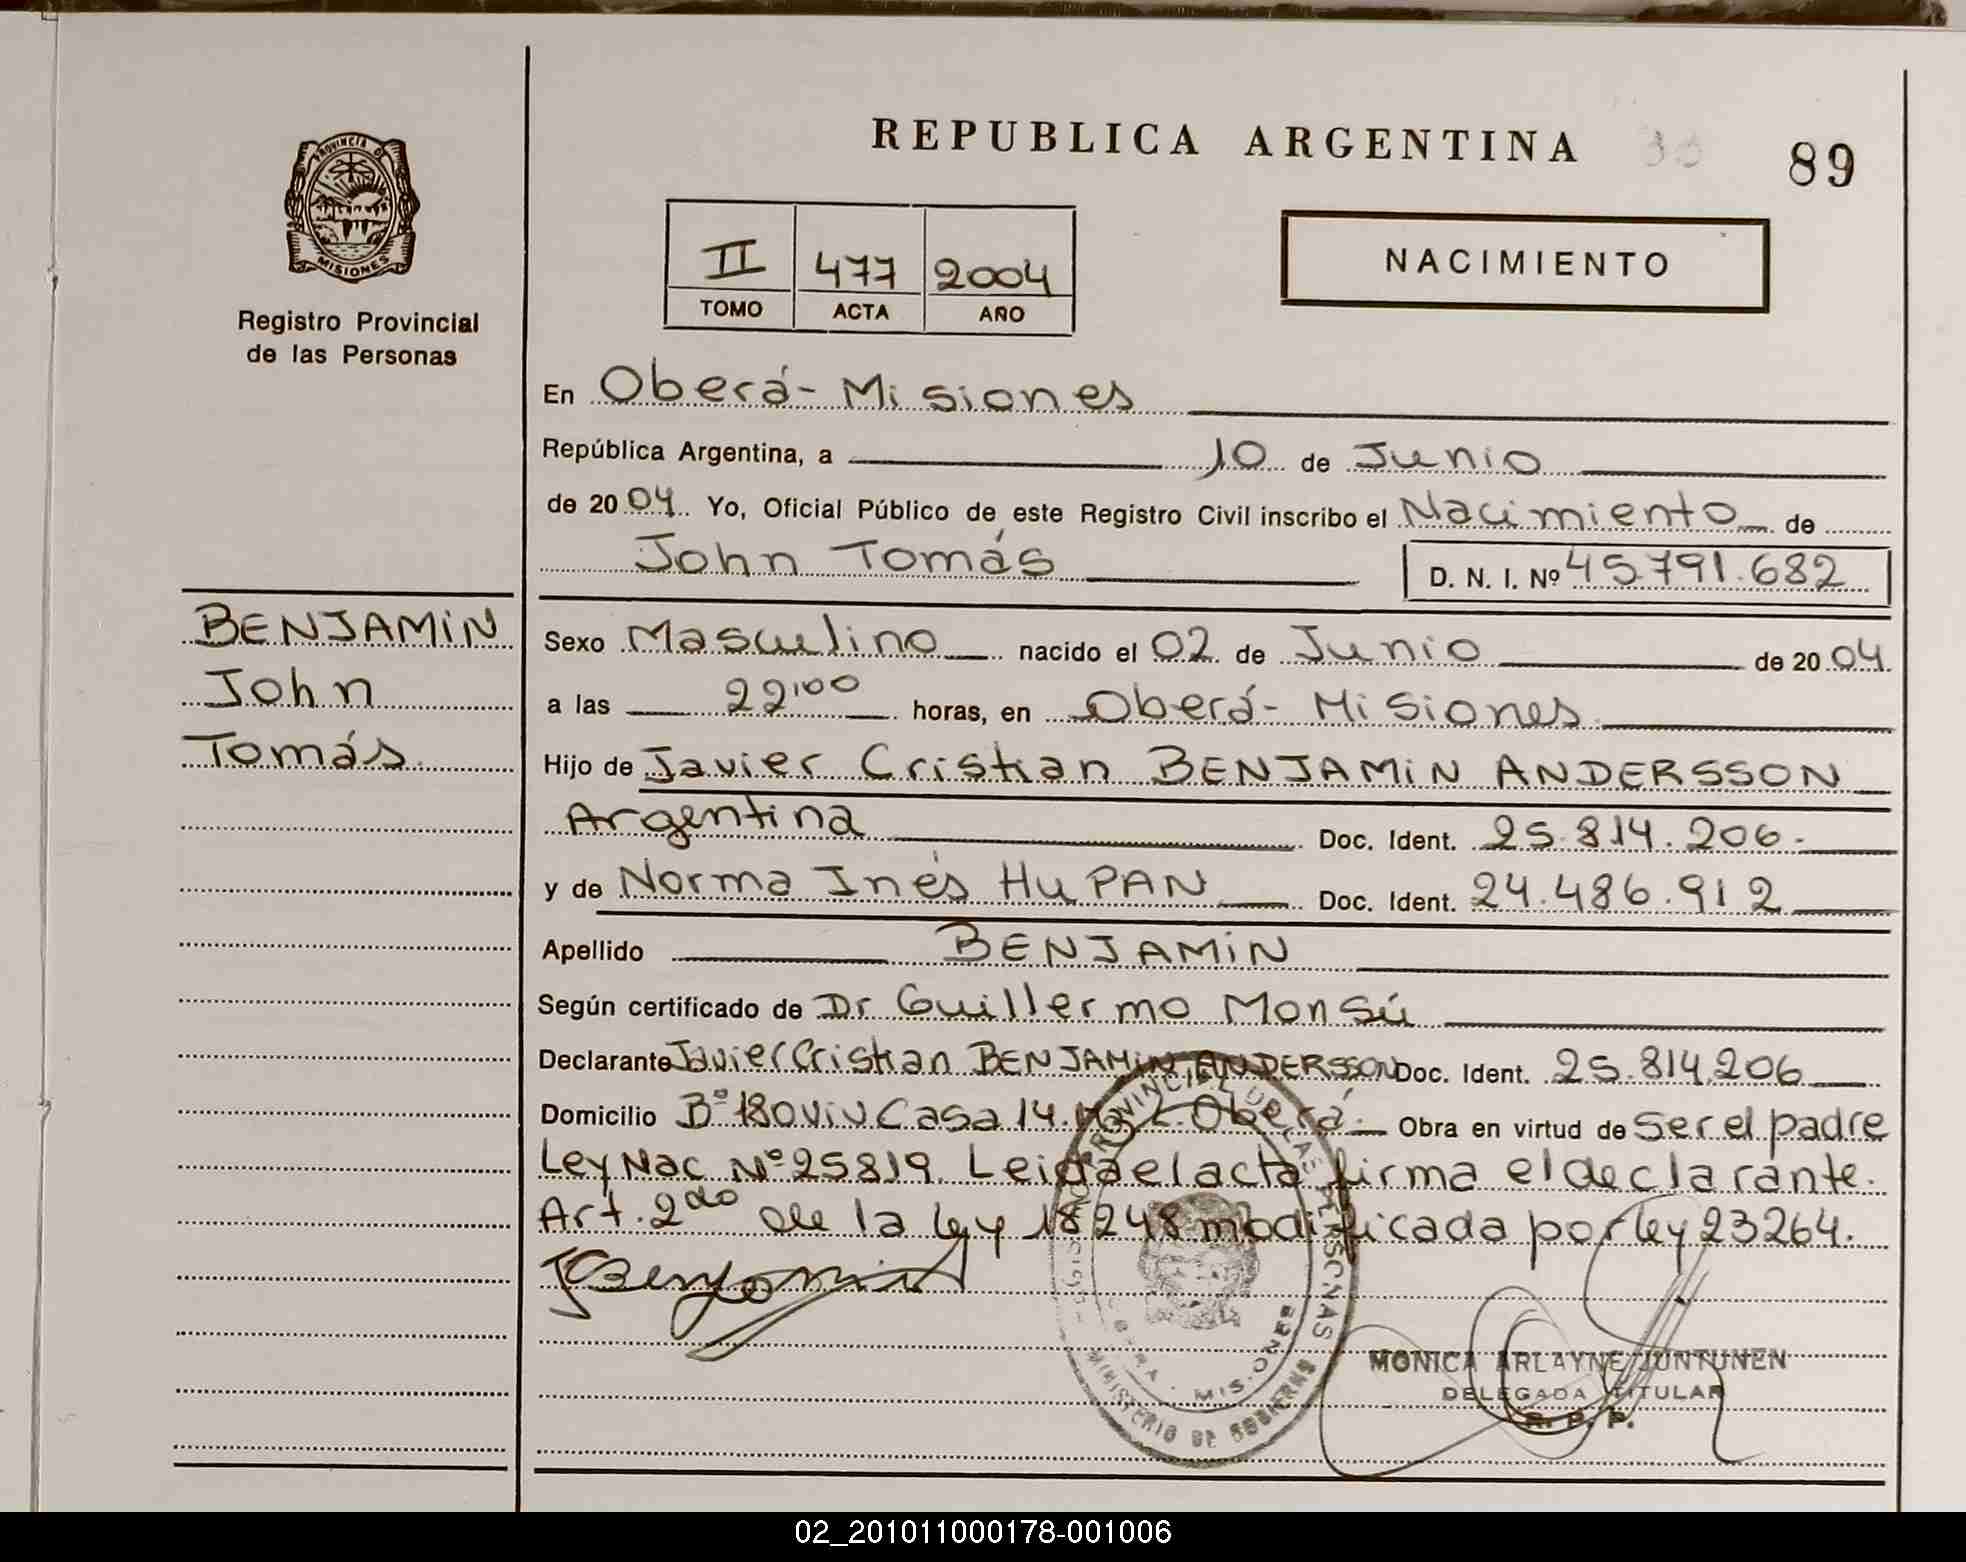 REPUBLICA ARGENTINA
89
PROVINCIA DE
MISIONES
Registro Provincial
de las Personas
II 477 2004
TOMO ACTA AÑO
NACIMIENTO
En Oberá - Misiones
República Argentina, a 10 de Junio
de 2004. Yo, Oficial Público de este Registro Civil inscribo el Nacimiento de
John Tomás
D. N. I. Nº 45.791.682
BENJAMIN
John
Tomás
Sexo Masculino nacido el 02 de Junio de 2004
a las 22'00 horas, en Oberá - Misiones
Hijo de Javier Cristian BENJAMIN ANDERSSON
Argentina Doc. Ident. 25.814.206.-
y de Norma Inés HuPAN Doc. Ident. 24.486.912
Apellido BENJAMIN
Según certificado de Dr Guillermo Monsú
Declarante Javier Cristian BENJAMIN ANDERSSON Doc. Ident. 25.814.206
Domicilio Bº 180 viv Casa 14. Oberá.- Obra en virtud de Ser el padre
Ley Nac Nº 25819. Leida el acta firma el declarante.
Art. 2do de la ley 18248 modificada por ley 23264.
JCBenjamin A
PROVINCIAL DE LAS PERSONAS
MISIONES
MINISTERIO DE GOBIERNO
MONICA ARLAYNE JUNTUNEN
DELEGADA TITULAR
R. P. P.
02_201011000178-001006